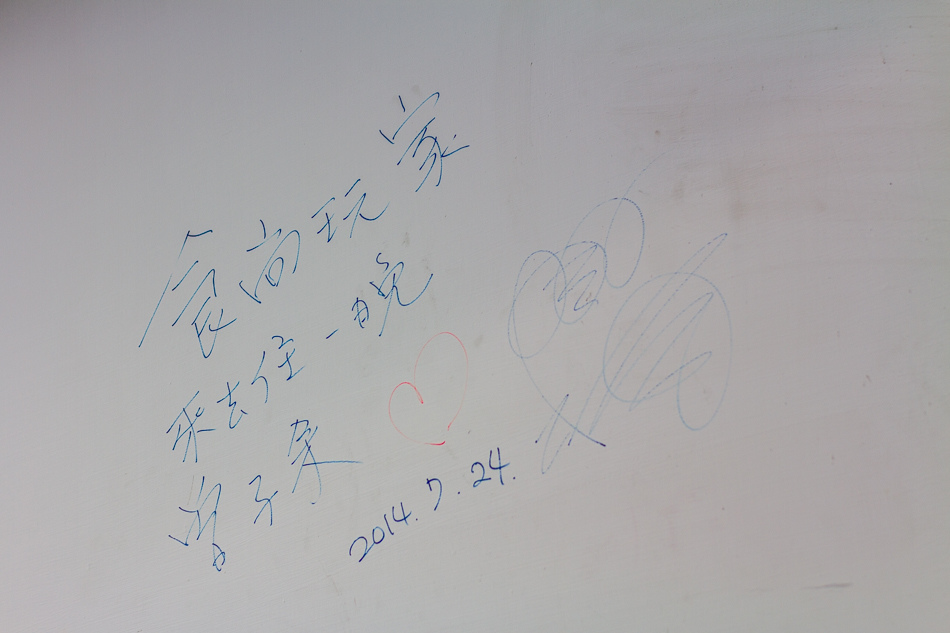 食尚玩家
來去住一晚
曾子余
2014.7.24.